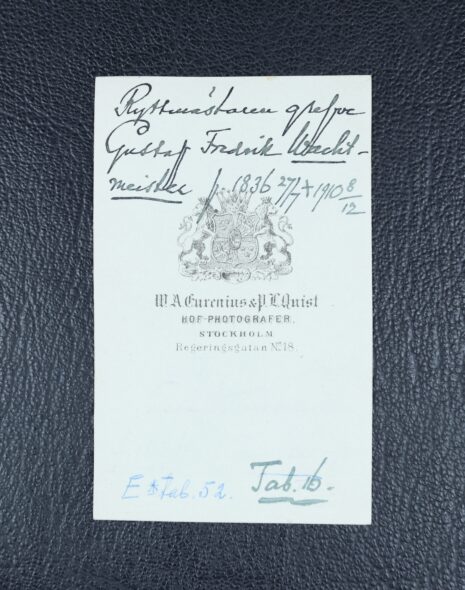 Ryttmästaren grefve
Gustaf Fredrik Wacht-
meister f. 1836 27/7 + 1910 8/12
W. A. Eurenius & P. L. Quist
HOF-PHOTOGRAFER.
STOCKHOLM
Regeringsgatan No 18.
E Tab. 52. Tab. 16.